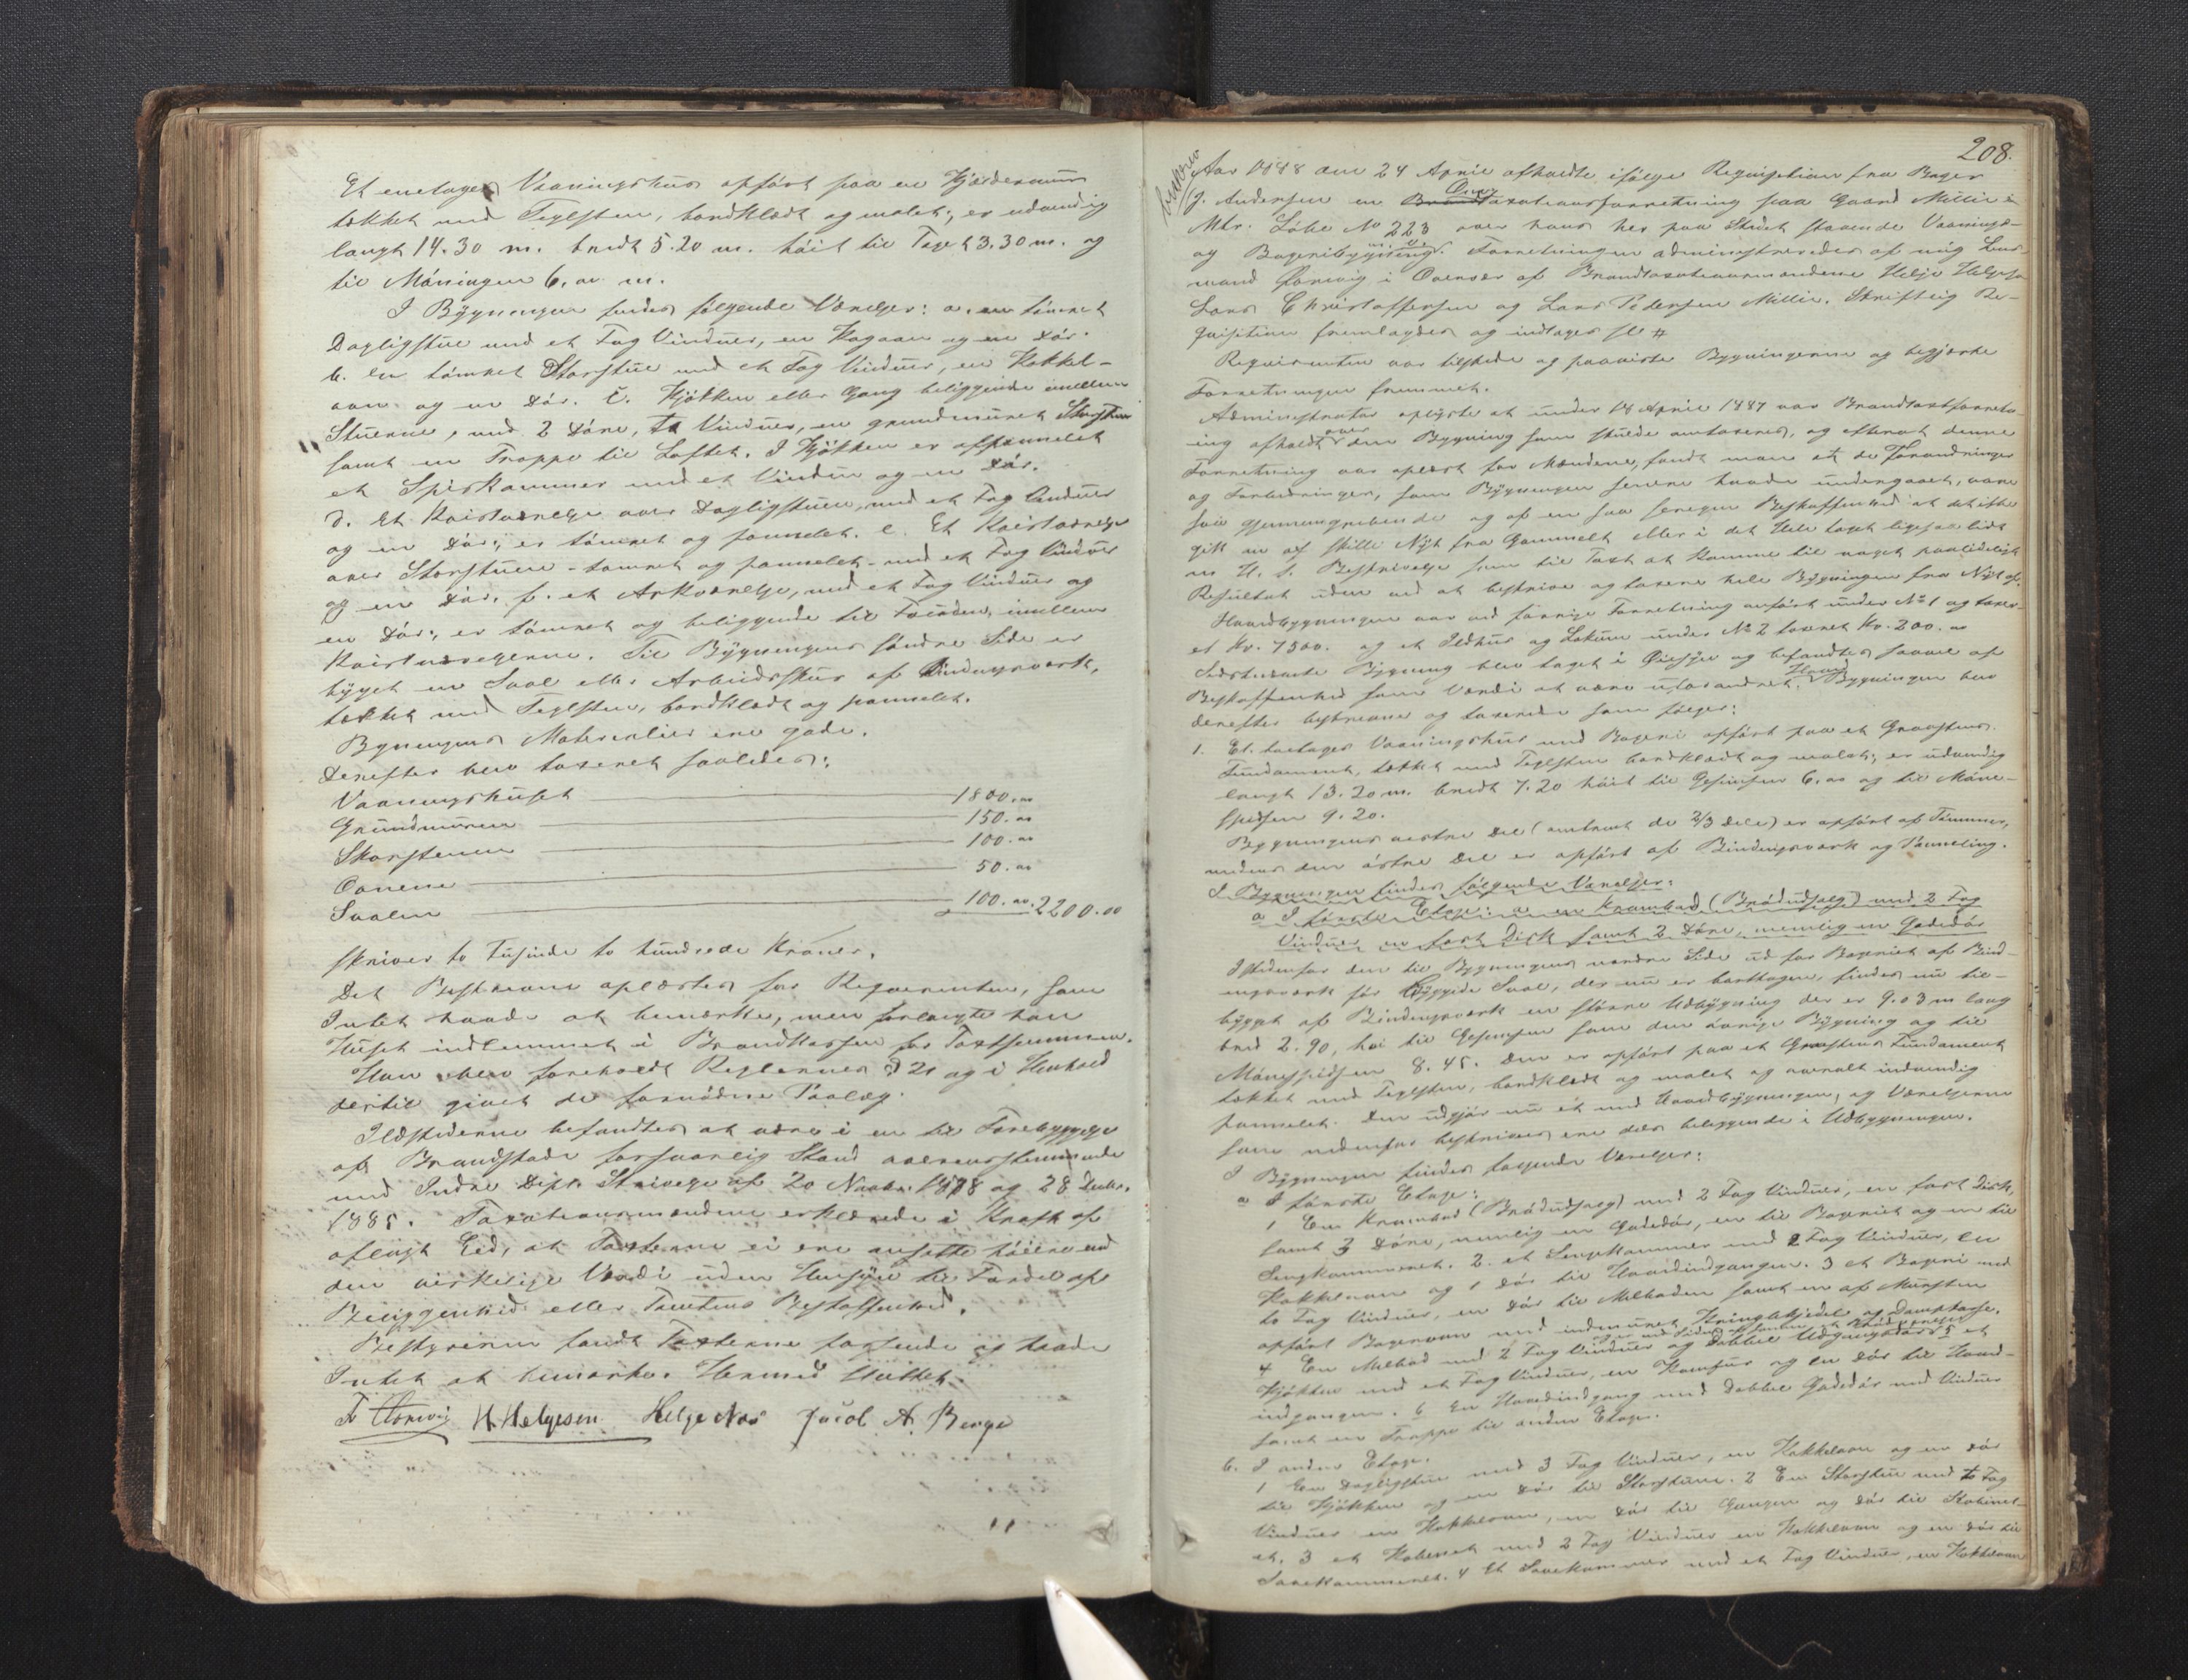 Et enetages Vaaningshus opført paa en Kjældermuur
tækket med Teglsten, bordklædt og malet; er udvendig
langt 14.30 m. bredt 5.20 m. høit til Taget 3.30 m. og
til Møningen 6,00 m.
I Bygningen findes følgende Værelser: a. en tømret
Dagligstue med et Fag Vinduer, en Kogeovn og en Dør.
b. En tømret Storstue med et Fag Vinduer, en Kakkel-
ovn og en Dør. c. Kjøkken eller Gang beliggende imellem
Stuerne, med 2 Døre, to Vinduer, en grundmuret Skorsten
samt en Trappe til Loftet. I Kjøkken er afpanelet
et Spiskammer med et Vindue og en Dør.
d. Et Kvistværelse over Dagligstuen, med et Fag Vinduer
og en Dør; er tømret og panelet. e. Et Kvistværelse
over Storstuen - tømret og panelet - med et Fag Vinduer
og en Dør. f. et Arkværelse, med et Fag Vinduer og
en Dør; er tømret og beliggende til Facaden, imellem
Kvistværelserne. Til Bygningens søndre Side er
bygget en Sval eller Arbeidsskur af Bindingsværk,
tækket med Teglsten, bordklædt og panelet.
Bygningens Materialier ere gode.
Derefter blev taxeret saaledes:
Vaaningshuset 1800.00
Grundmuren 150.00
Skorstenen 100.00
Ovnene 50.00
Svalen 100.00. 2200.00
skriver to Tusinde to hundrede Kroner.
Det Beskrevne oplæstes for Rekvirenten, som
Intet havde at bemærke, men forlangte han
Huset indlemmet i Brandkassen for Taxtsummen.
Han blev foreholdt Reglernes § 21 og i Henhold
dertil givet de fornødne Paalæg.
Ildstederne befandtes at være i en til Forebyggelse
af Brandskade forsvarlig Stand overensstemmende
med Indre Dept. Skrivelse af 20 Novbr. 1878 og 28 Decbr.
1885. Taxationsmændene erklærede i Kraft af
aflagt Eed, at Taxterne ei ere ansatte høiere end
den virkelige Værdi uden Hensyn til Fordel af
Beliggenhed eller Tomtens Beskaffenhed.
Bestyreren fandt Taxterne passende og havde
Intet at bemærke. Hermed sluttet.
H Helgesen Helge Næs Jacob A. Berge
208.
Beskrev
Aar 1888 den 24 April afholdte ifølge Requisition fra Bager
J. Andersen en Omtaxationsforretning paa Gaard Millie
Mtr. Løbe No 223 over hans her paa Stedet staaende Vaanings-
og Bageribygning. Forretningen administreredes af mig Lens-
mand i af Brandtaxationsmændene Helje Heljesen
Lars Christoffersen og Lars Pedersen Millie. Skriftlig Re-
quisition fremlagdes og indtages sl #
Requirenten var tilstede og paaviste Bygningerne og begjærte
Forretningen fremmet.
Administrator oplyste at under 18 April 1887 var Brandtaxtforretn-
ing afholdt over den Bygning som skulde omtaxeres, og efterat denne
Forretning var oplæst for Mændene, fandt man at de Forandringer
og Forbedringer, som Bygningen senere havde undergaaet, vare
saa gjennemgribende og af en saa særegen Beskaffenhed at det ikke
gik an at skille Nyt fra Gammelt eller i det Hele taget ligesaa lidt
m. H. t. Beskrivelse som til Taxt at komme til noget paalideligt
Resultat uden ved at beskrive og taxere hele Bygningen fra Nyt af.
Hovedbygningen var ved forrige Forretning anført under No 1 og taxer-
et Kr. 7500. og et Ildhus og Lokum under No 2 taxeret Kr. 200.00
Sidstnævnte Bygning blev taget i Øiesyn og befandtes saavel af
Beskaffenhed som Værdi at være uforandret. Hovedbygningen blev
derefter beskreven og taxeret som følger:
1. Et toetages Vaaningshus med Bageri opført paa et Graastens
Fundament, tækket med Teglsten bordklædt og malet; er udvendig
langt 13.20 m. bredt 7.20 høit til Gesimsen 6.00 og til Møne-
spidsen 9.20.
Bygningens vestre Del (omtrent de 2/3 Dele) er opført af Tømmer,
medens den østre Del er opført af Bindingsværk og Paneling.
I Bygningen findes følgende Værelser:
a I første Etage: a en Krambod (Brødudsalg) med 2 Fag
Vinduer en fast Disk samt 2 Døre, nemlig en Gadedør
Istedenfor den til Bygningens nordre Side ud for Bageriet af Bind-
ingsværk før byggede Sval, der nu er borttagen, findes nu til-
bygget af Bindingsværk en større Udbygning der er 9.03 m lang
bred 2.90, høi til Gesimsen som den øvrige Bygning og til
Mønespidsen 8.45. Den er opført paa et Graastens Fundament
tækket med Teglsten, bordklædt og malet og overalt indvendig
panelet. Den udgjør nu ét med Hovedbygningen, og Værelserne
som nedenfor beskrives ere dels beliggende i Udbygningen.
I Bygningen findes følgende Værelser:
a I første Etage:
1 En Krambod (Brødudsalg) med 2 Fag Vinduer, en fast Disk,
samt 3 Døre, nemlig en Gadedør, en til Bageriet og en til
Sengkammeret. 2. et Sengekammer med 2 Fag Vinduer, en
Kakkelovn og 1 Dør til Hovedindgangen. 3 et Bageri med
to Fag Vinduer, en Dør til Melboden samt en af Mursten
opført Bagerovn med indmuret Kringlekjedel og Dampkasse.
4 En Melbod med 2 Fag Vinduer og dobbel Udgangsdør. 5 et
Kjøkken med et Fag Vinduer, en Komfur og en Dør til Hoved-
indgangen. 6 En Hovedindgang med dobbel Gadedør med Vinduer
samt en Trappe til anden Etage.
b. I anden Etage.
1 En Dagligstue med 3 Fag Vinduer, en Kakkelovn og en Dør
til Kjøkken og en Dør til Storstuen. 2 En Storstue med to Fag
Vinduer en Kakkelovn, en Dør til Gangen og Dør til Kabinet-
et. 3 et Kabinet med 2 Fag Vinduer en Kakkelovn og en Dør til
Sovekammeret. 4 Et Sovekammer med et Fag Vinduer, en Kakkelovn